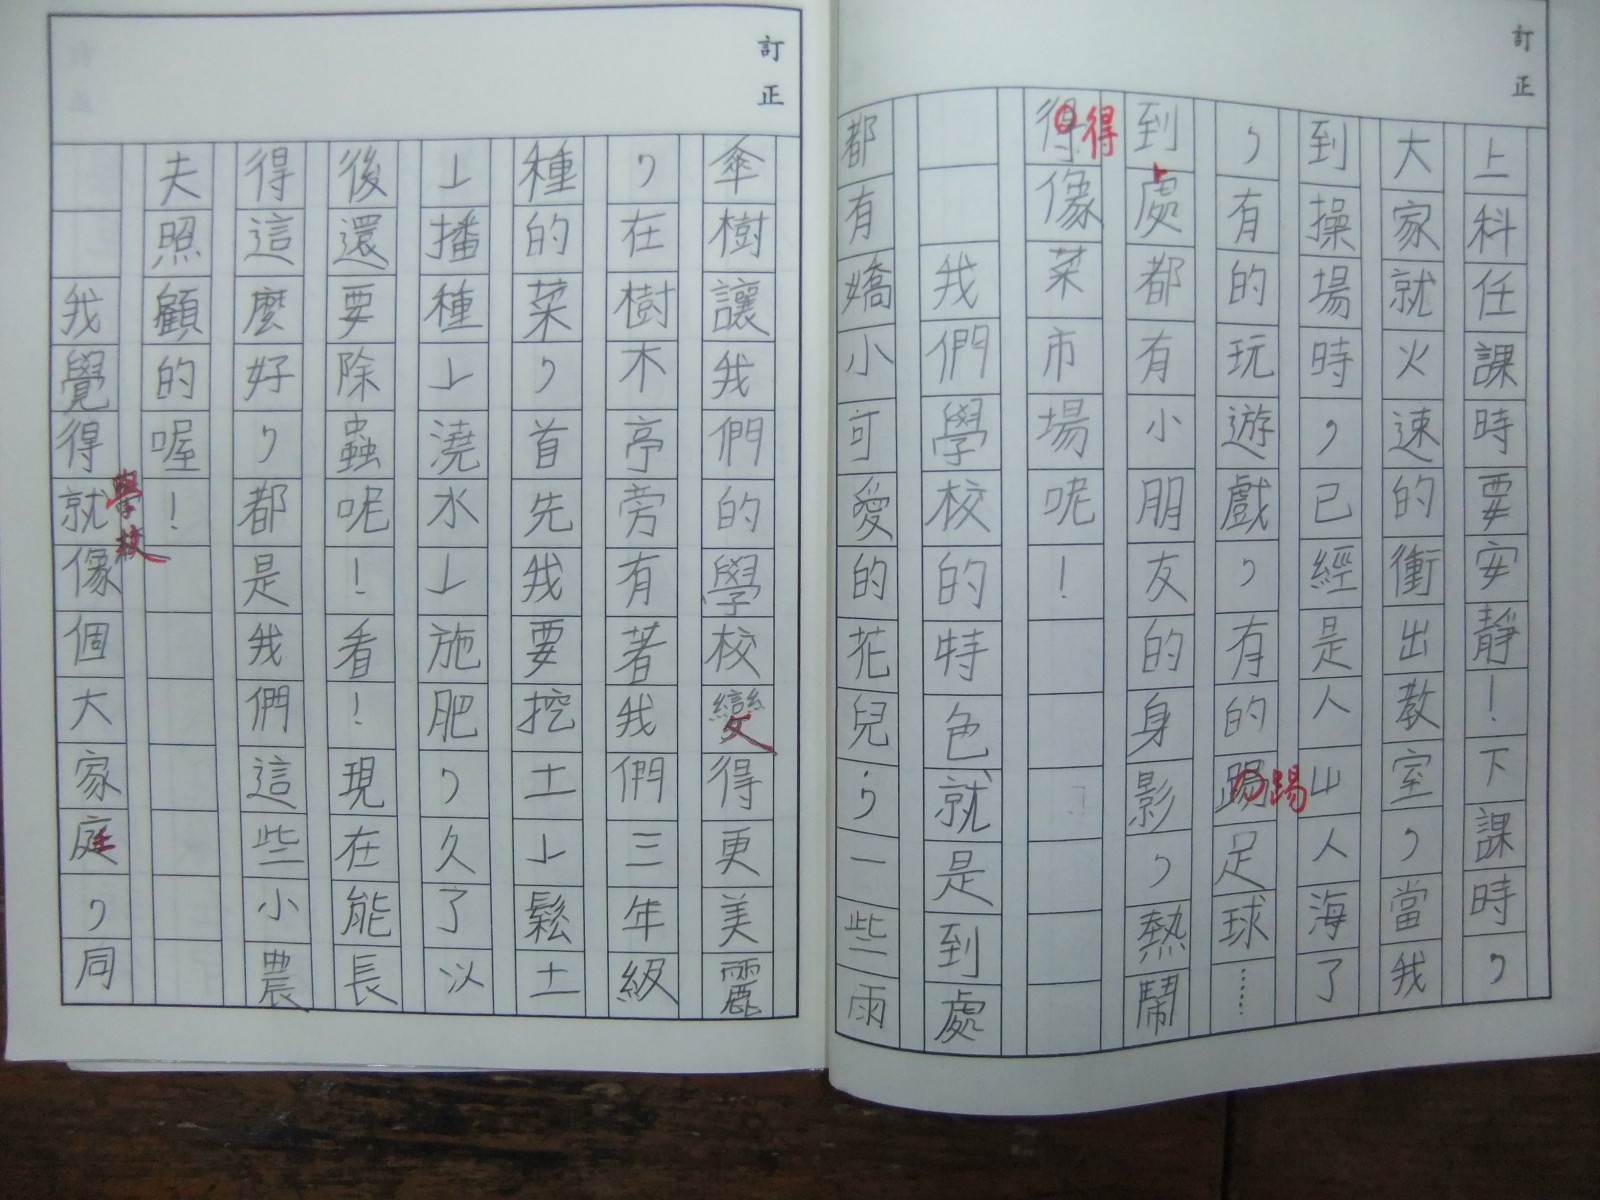 訂正
上科任課時要安靜！下課時，
大家就火速的衝出教室，當我
到操場時，已經是人山人海了
，有的玩遊戲，有的踢足球……
踢
到處都有小朋友的身影，熱鬧
得像菜市場呢！
得
我們學校的特色就是到處
都有嬌小可愛的花兒，一些雨
訂正
傘樹讓我們的學校變得更美麗
，在樹木亭旁有著我們三年級
種的菜，首先我要挖土、鬆土
、播種、澆水、施肥，久了以
後還要除蟲呢！看！現在能長
得這麼好，都是我們這些小農
夫照顧的喔！
學校
我覺得就像個大家庭，同